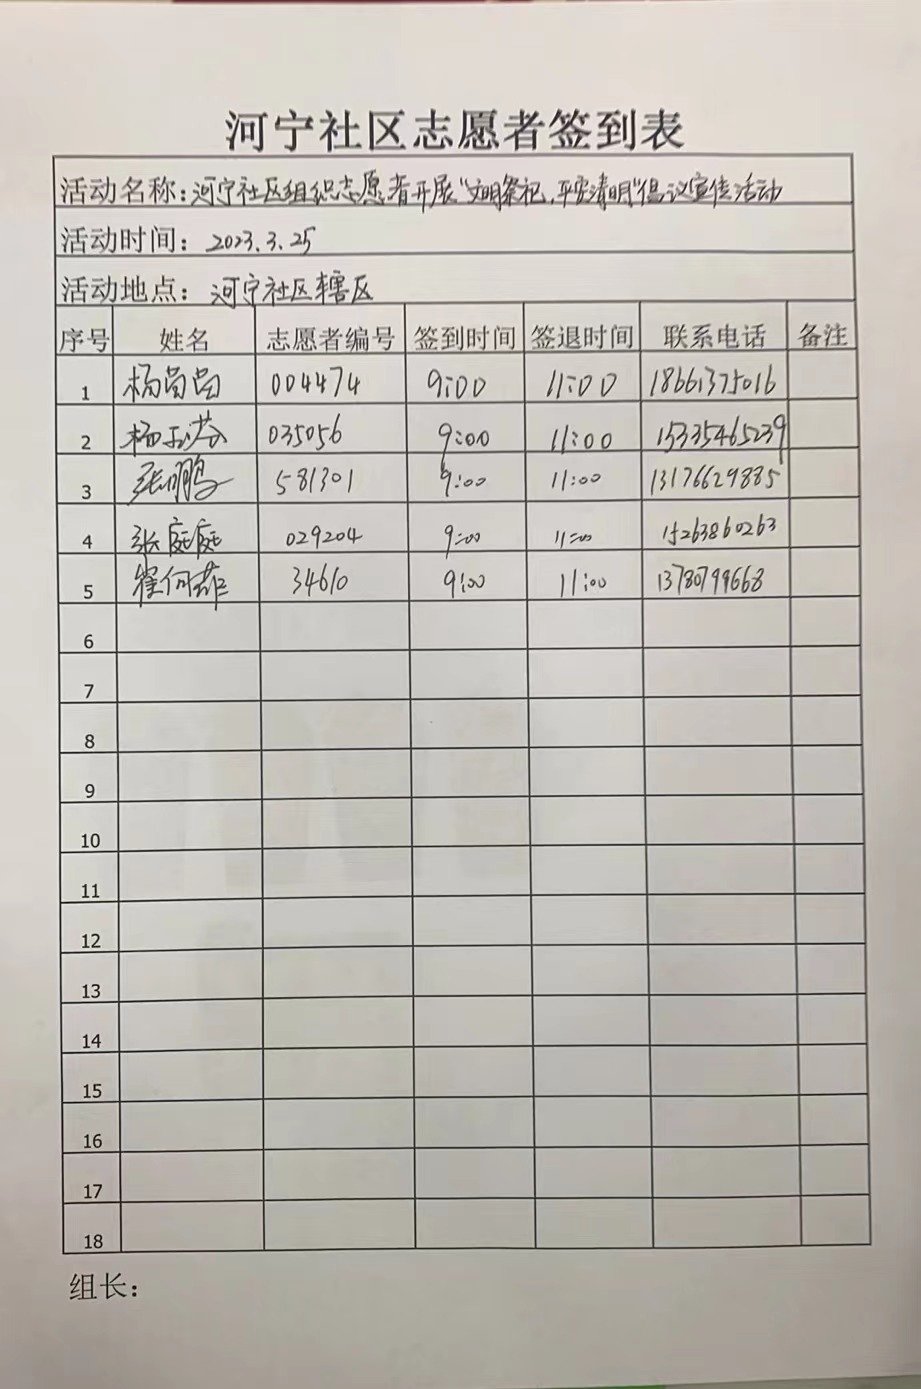 河宁社区志愿者签到表
活动名称：河宁社区组织志愿者开展“文明祭祀,平安清明”倡议宣传活动
活动时间：2023.3.25
活动地点：河宁社区辖区
序号 姓名 志愿者编号 签到时间 签退时间 联系电话 备注
1 杨 004474 9:00 11:00 18661375016
2 杨 035056 9:00 11:00 15335465239
3 张鹏 581301 9:00 11:00 13176629885
4 张庭庭 029204 9:00 11:00 15263860263
5 34610 9:00 11:00 13780799668
6
7
8
9
10
11
12
13
14
15
16
17
18
组长：